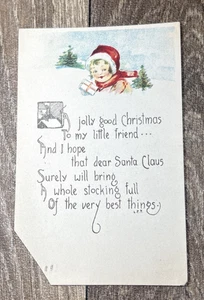 A jolly good Christmas
To my little friend...
And I hope
that dear Santa Claus
Surely will bring
A whole stocking full
Of the very best things.